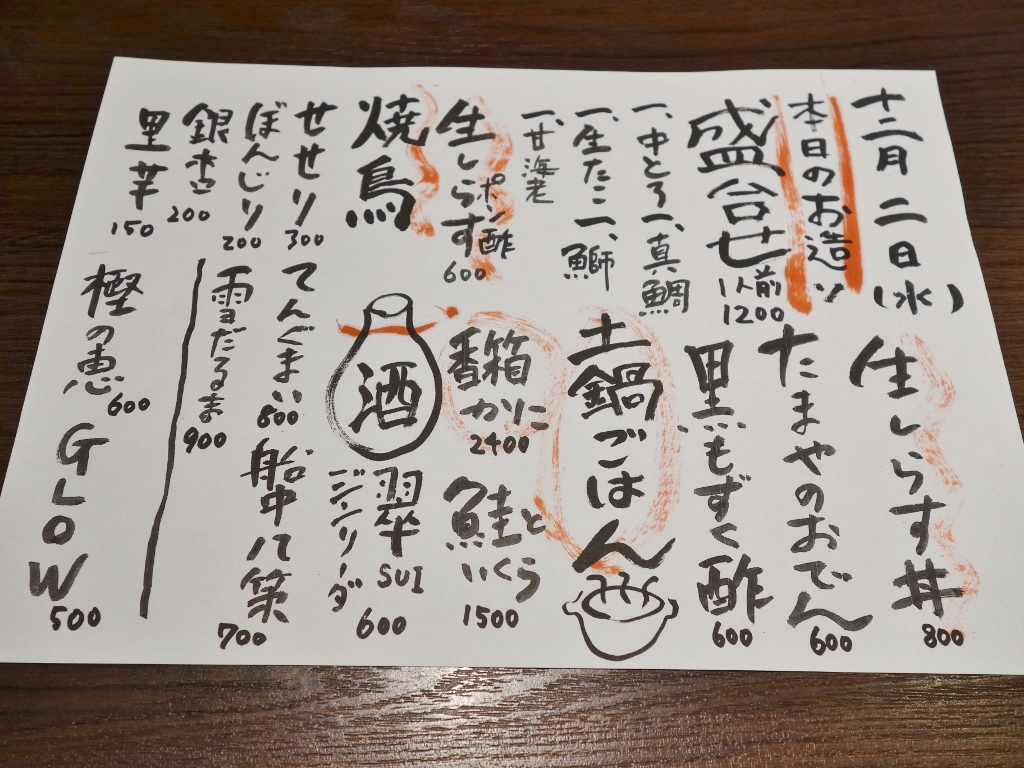 十二月二日(水)
本日のお造り
盛合せ
1人前
1200
一、中とろ一、真鯛
一、生たこ一、鰤
一、甘海老
生しらす
ポン酢
600
焼鳥
せせり
300
ぼんじり
200
銀杏
200
里芋
150
生しらす丼
800
たまやのおでん
600
黒もずく酢
600
土鍋ごはん
香箱
かに
2400
鮭と
いくら
1500
酒
翠
SUI
ジンソーダ
600
てんぐまい
800
船中八策
700
雪だるま
900
樫の恵
600
GLOW
500